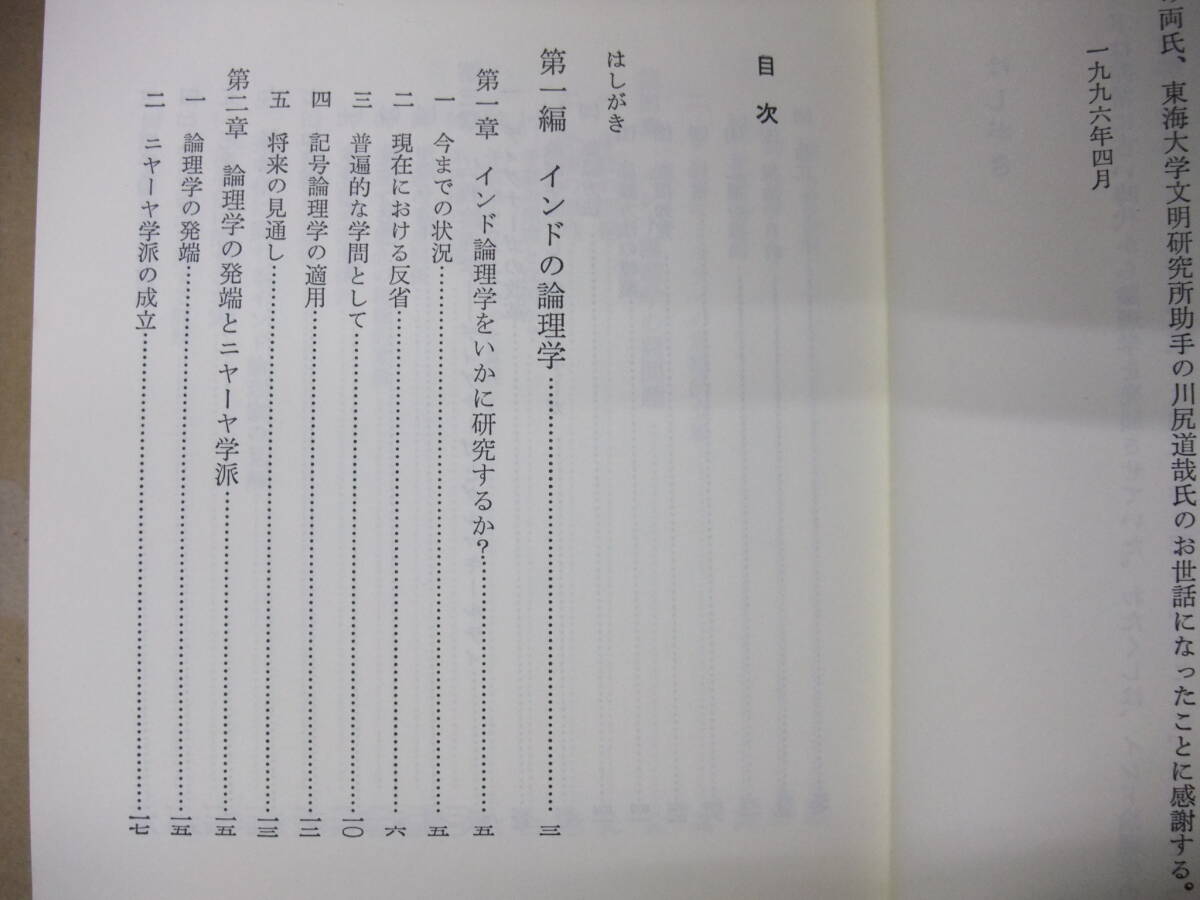 両氏、東海大学文明研究所助手の川尻道哉氏のお世話になったことに感謝する。
一九九六年四月
目次
はしがき
第一編 インドの論理学……三
第一章 インド論理学をいかに研究するか？……五
一 今までの状況……五
二 現在における反省……六
三 普遍的な学問として……一〇
四 記号論理学の適用……一二
五 将来の見通し……一三
第二章 論理学の発端とニヤーヤ学派……一五
一 論理学の発端……一五
二 ニヤーヤ学派の成立……一七